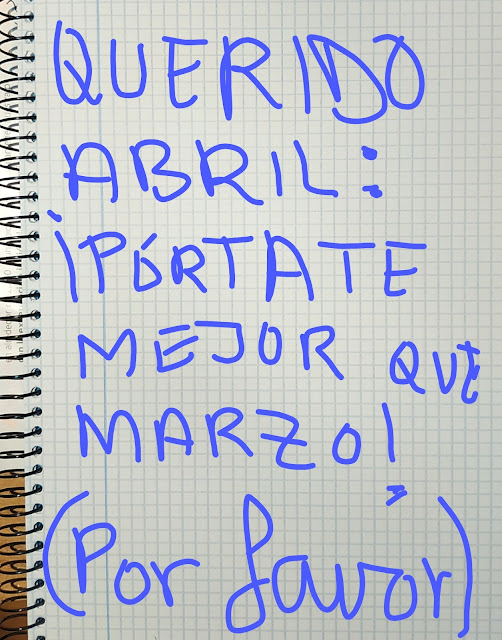 QUERIDO
ABRIL:
¡PÓRTATE
MEJOR QUE
MARZO!
(Por favor)